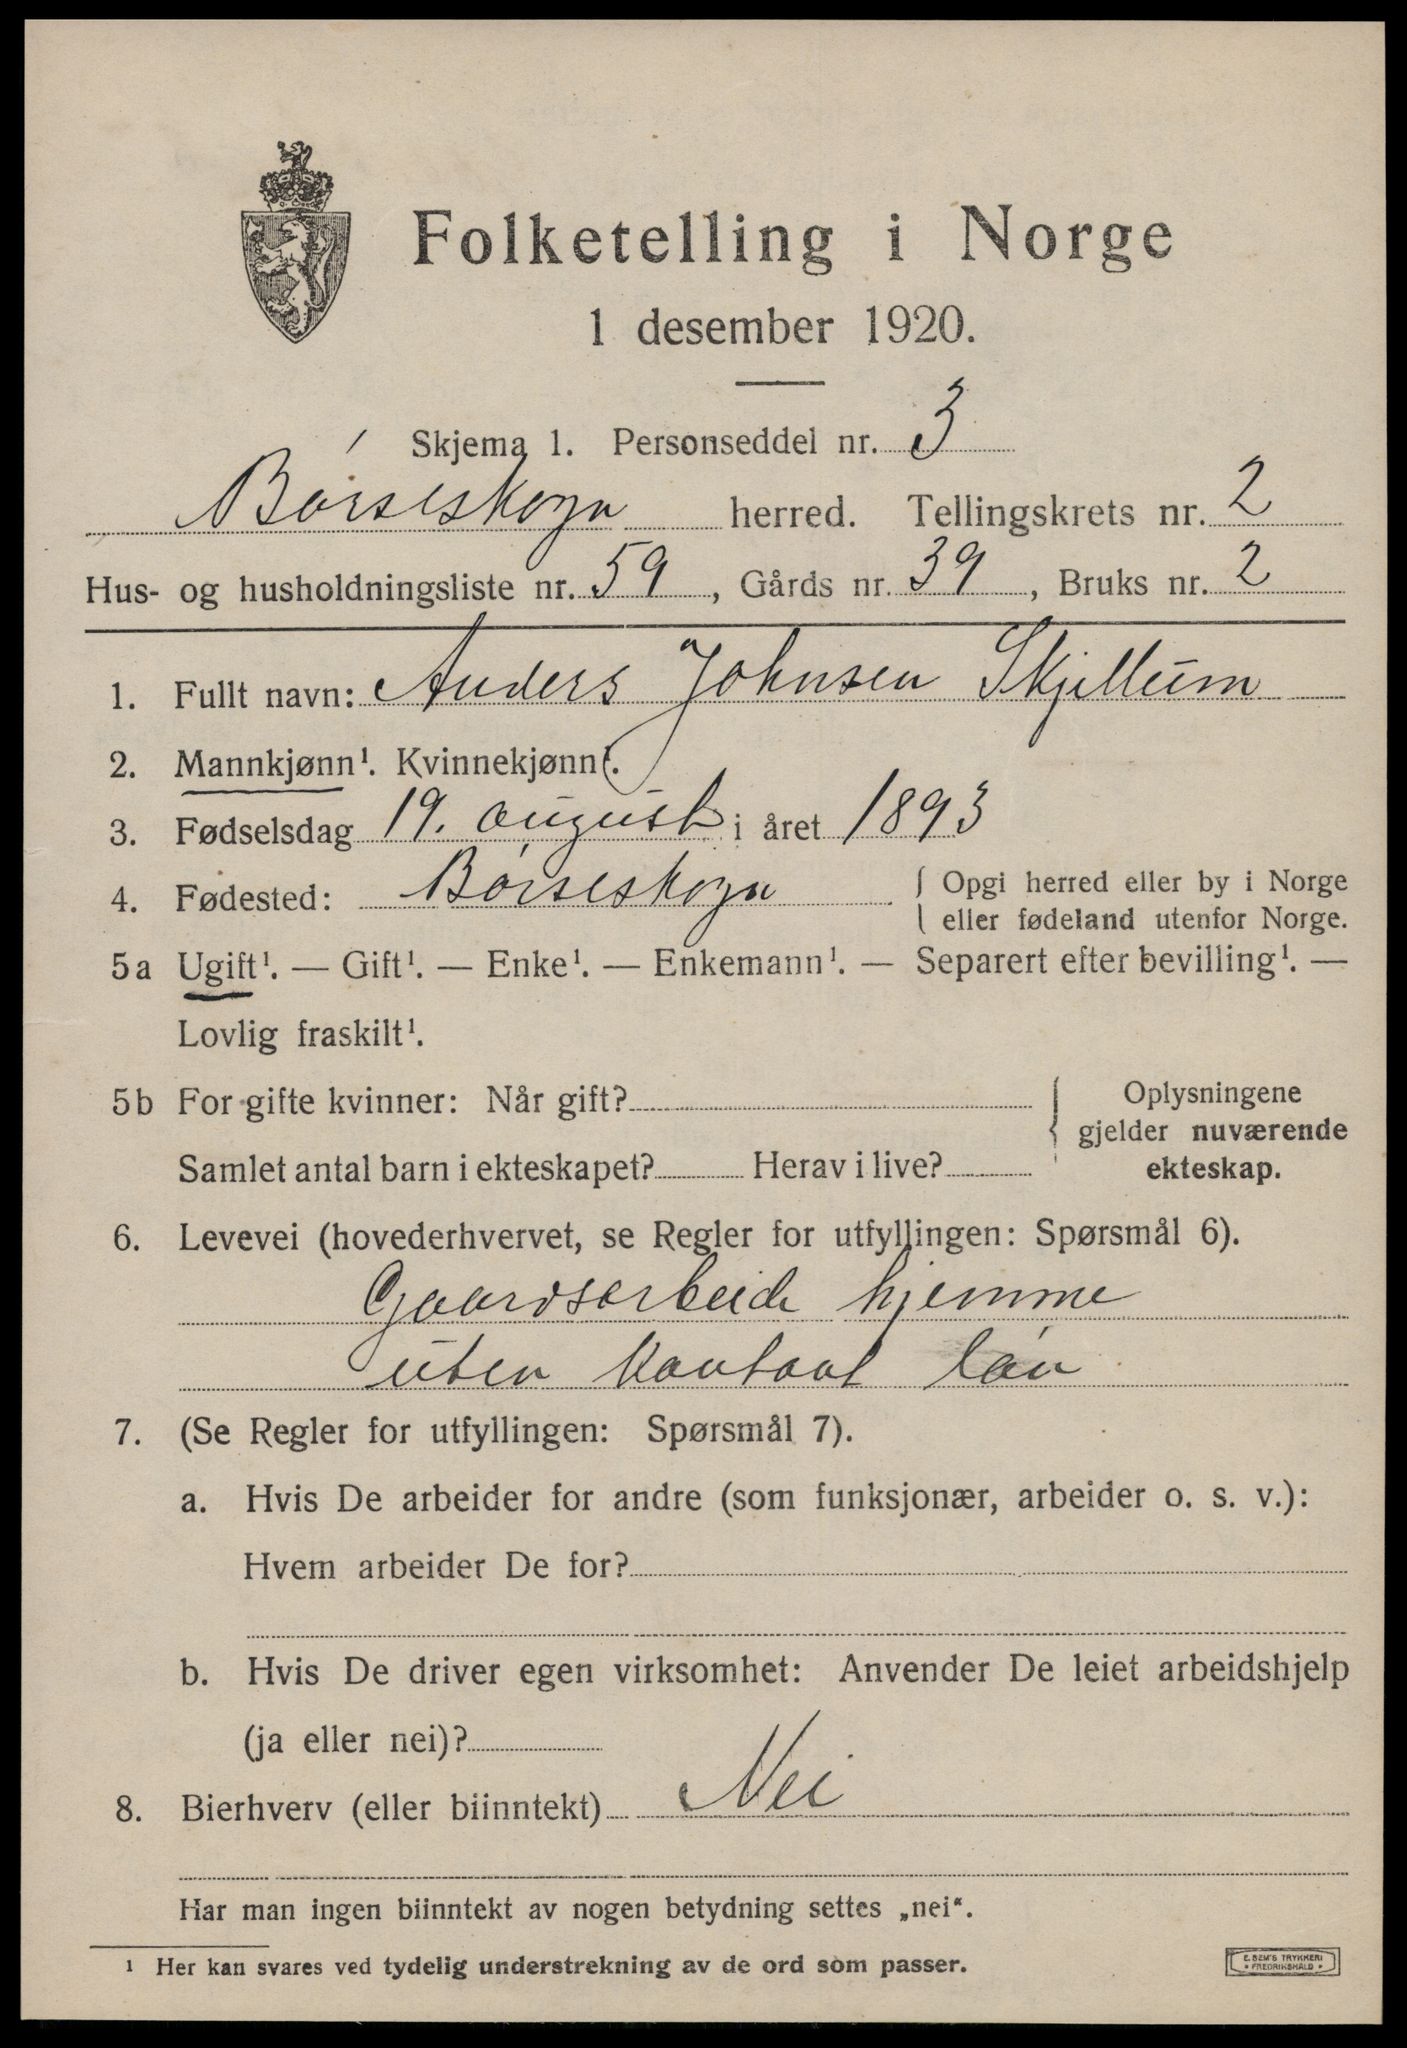 Folketelling i Norge
1 desember 1920.
Skjema 1. Personseddel nr. 3
Børseskogn herred. Tellingskrets nr. 2
Hus- og husholdningsliste nr. 59, Gårds nr. 39, Bruks nr. 2
1. Fullt navn: Anders Johnsen Skjellum
2. Mannkjønn¹. Kvinnekjønn¹.
3. Fødselsdag 19. august i året 1893
4. Fødested: Børseskogn { Opgi herred eller by i Norge
eller fødeland utenfor Norge.
5a Ugift¹. — Gift¹. — Enke¹. — Enkemann¹. — Separert efter bevilling¹. —
Lovlig fraskilt¹.
5b For gifte kvinner: Når gift?
Samlet antal barn i ekteskapet? Herav i live?
Oplysningene
gjelder nuværende
ekteskap.
6. Levevei (hovederhvervet, se Regler for utfyllingen: Spørsmål 6).
Gaardsarbeide hjemme
uten kontant løn
7. (Se Regler for utfyllingen: Spørsmål 7).
a. Hvis De arbeider for andre (som funksjonær, arbeider o. s. v.):
Hvem arbeider De for?
b. Hvis De driver egen virksomhet: Anvender De leiet arbeidshjelp
(ja eller nei)?
8. Bierhverv (eller biinntekt) Nei
Har man ingen biinntekt av nogen betydning settes „nei“.
¹ Her kan svares ved tydelig understrekning av de ord som passer.
E. SEM'S TRYKKERI
• FREDRIKSHALD •